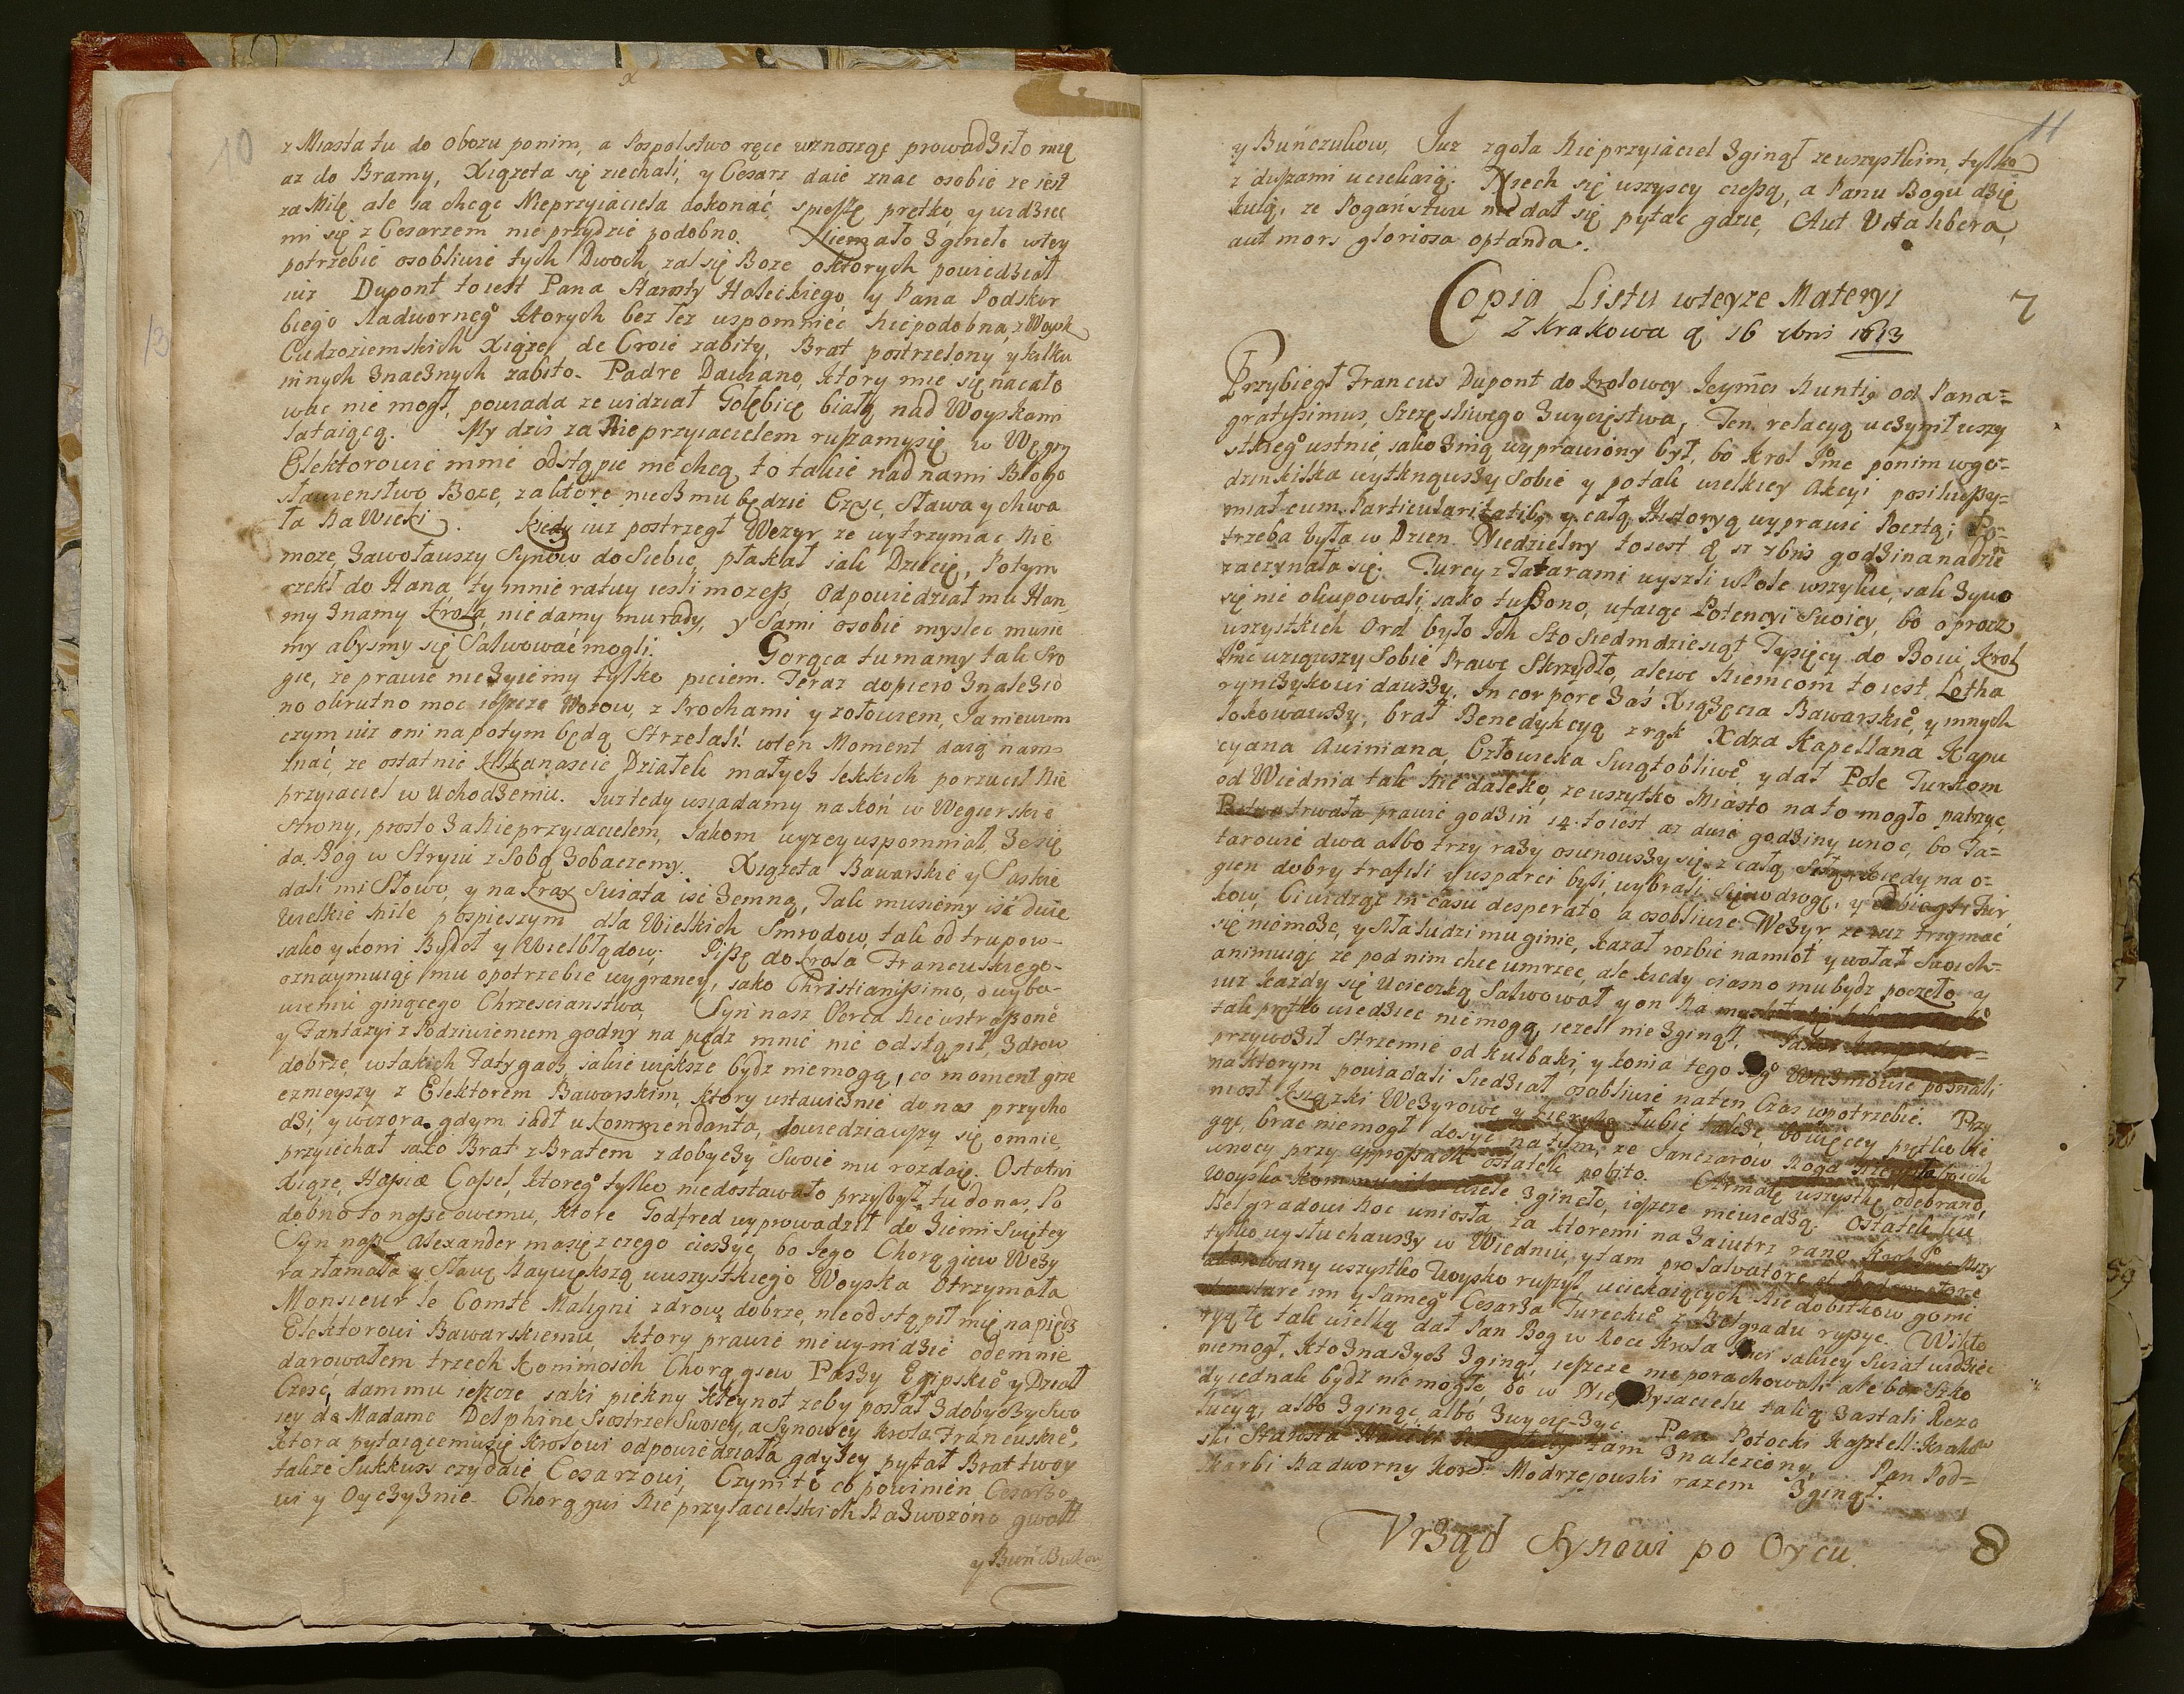 10
z Miasta tu do obozu ponim, a Pospolstwo ręce wznosząc prowadziło mię
az do Bramy, Xiązeta się ziechali, y Cesarz daie znac osobie ze iest
za Milę ale ia chcąc Nieprzyiaciela dokonać spieszę prętko, y widziec
mi się z Cesarzem nie przydzie podobno. Niemało zgineło wtey
potrzebie osobliwie tych Dwoch, zal się Boze oktorych powiedział
iuz Dupont toiest Pana Starosty Halickiego y Pana Podskar
biego Nadwornego ktorych bez łez uspomnieć niepodobna, z Woysk
Cudzoziemskich Xiąze de Croie zabity, Brat postrzelony y kilku
innych znacznych zabito. Padre Daviano, ktory mie się nacało
wac nie mogł, powiada ze widział Gołębicę białą nad Woyskami
lataiącą. My dzis za Nieprzyiacielem ruszamy się w Węgry
Elektorowie mnie odstąpic niechcą, to takie nad nami Błogo
sławienstwo Boze, zaktore niech mu będzie Czesc, Sława y chwa
ła Na Wieki. Kiedy iuz postrzegł Wezyr ze wytrzymac nie
moze zawoławszy Synow do siebie, płakał iak Dziecię, Potym
rzekł do Hana, ty mnie ratuy iesli mozesz, Odpowiedział mu Han,
my znamy Krola, nie damy mu rady, y Sami osobie myslec musie
my abysmy się Salwować mogli. Gorąca tu mamy tak Sro
gie, ze prawie nie zyiemy tylko piciem. Teraz dopiero znalezio
no okrutno moc ieszcze Wozow, z Prochami y ołowiem, Ia niewiem
czym iuz oni napotym będą Strzelali. wten Moment daią nam
znać, ze ostatnie kilkanascie Działek małych lekkich porzucił Nie
przyiaciel w Uchodzeniu. Iuz tedy wsiadamy na koń w Wegierskie
Strony, prosto za Nieprzyiacielem, Iakom wyzey uspomniał, ze się
da, Bog w Stryiu z Sobą zobaczemy. Xiązeta Bawarskie y Saskie
dali mi Słowo, y na kray Swiata isc zemną, Tak musiemy iść dwie
Wielkie mile pospieszym dla Wielkich Smrodow, tak od trupow
iako y koni Bydeł y Wielbłądow. Piszę do Krola Francuskiego
oznaymuiąc mu opotrzebie wygraney, iako Christianissimo, o wyba
wieniu ginącego Chrzescianstwa, Syn nasz
y Fantazyi z Podziwieniem godny na piędz mnie nie odstąpił, Zdrow
dobrze, w takich Fatygach, iakie większe bydz niemogą, co moment grze
cznieyszy z Elektorem Bawarskim, ktory ustawicznie do nas przycho
dzi, y wczora gdym iadł u Kommendanta, dowiedziawszy się omnie,
przyiechał iako Brat z Bratem zdobyczy Swoie mu rozdaię. Ostatni
Xiąze, Hassiae Cassel, ktorego tylko niedostawało przybył tu do nas, Po
dobno to nasze owemu, ktore Godfred wyprowadził do Ziemi Swiętey
Syn nasz Alexander ma się z czego cieszyć, bo Iego Chorągiew Wezy
ra złamała y Sławę Naywiększą u wszystkiego Woyska otrzymała
Monsieur le Comte Maligni zdrow, dobrze, nie odstąpił mię na piędz
Elektorowi Bawarskiemu, ktory prawie nie wynidzie odemnie
darowałem trzech Koni moich Chorągiew Paszy Egipskiego y Dział
Czesc, dam mu ieszcze iaki piekny kleynot zeby posłał zdobyczy Swo
iey do Madame Delphine Siostrze Swoiey, a Synowey Krola Francuskiego,
ktora pytaiącemu się Krolowi odpowiedziała, gdy iey pytał Brat twoy
takze Sukkurs czy daie Cesarzowi, Czyni to co powinien Cesarzo
wi y Oyczyznie. Chorągwi Nieprzyiacielskich Nazwozono gwałt
y Buńczukow
11
y Buńczukow, Iuz zgoła Nieprzyiaciel zginął ze wszystkim, tylko
z duszami uciekaią. Niech się wszyscy cieszą, a Panu Bogu dzię
kuią, ze Poganstwu nie dał się pytac gdzie, Aut Vita libera,
aut mors gloriosa optanda.
Copia Listu wteyze Materyi 7
Z Krakowa d 16 1683
Przybiegł Francus Dupont do Krolowey Ieymci Nuntią od Pana
gratissimus, Szczęsliwego Zwycięstwa, Ten relacyą uczynił wszy
stkiego ustnie, iako znią wyprawiony był, bo Krol Imc ponim w go
dzin kilka wytknąwszy Sobie y po tak wielkiey Akcyi posiliwszy
miał cum Particularitatibus y całą Historyą wyprawić Pocztą; Po
trzeba była w Dzien Niedzielny toiest d 12 7bris godzina nadzień
zaczynała się. Turcy z Tatarami wyszli w Pole wszyscy, iak zywo
się nie okupowali, iako tuszono, ufaiąc Potencyi Swoiey, bo oprocz
wszystkich Ord było ich Sto Siedmdziesiąt Tysięcy do Boiu, Krol
Imc wziąwszy Sobie Prawe Skrzydło, a lewe Niemcom toiest Lotha
rynczykowi dawszy. In corpore zaś Xiązęcia Bawarskiego y innych
lokowawszy, brał Benedykcyą z rąk Xdza Kapellana Kapu
cyana Awiniana, Człowieka Swiątobliwego y dał Pole Turkom
od Wiednia tak nie daleko, ze wszytko Miasto na to mogło patrzyc,
trwała prawie godzin 14. toiest az dwie godziny w noc, bo Ta
tarowie dwa albo trzy razy osunowszy się z całą Kiedy na o
gien dobry trafili y wsparci byli, wybrali się w drogę, y Tur
kow, Ci widząc in casu desperato, a osobliwie Wezyr, ze iuz trzymać
się niemoze, y Siła ludzi mu ginie, kazał rozbic namiot y wołał Swoich
animuiąc ze pod nim chce umrzec, ale kiedy ciasno mu bydz poczęło y
iuz kazdy się Ucieczką Salwował y on Na
tak prętko wiedziec niemogą, iezeli nie zginął.
przywoził Strzemie od kulbaki, y konia tego Wiezniowie poznali
na ktorym powiadali Siedział osobliwie na ten Czas w potrzebie. Przy
niosł Ksiązki Wezyrowe takze, bo więcey prętko nie
gąc, brac niemogł dosyć na tym, ze Janczarow Noga
w nocy przy ostatek pobito. Armatę wszystkę odebrano,
Woyska wiele zgineło, ieszcze niewiedzą. Ostatek ku
Belgradowi Noc uniosła, za ktoremi na zaiutrz rano
tylko wysłuchawszy w Wiedniu, y tam pro Salvatore et
wszystko Woysko ruszył, uciekaiących Niedobitkow goni
im y Samego Cesarza Tureckiego z Belgradu ruszyc.
tak wielką dał Pan Bog w Rece Krola iakiey Swiat widziec
niemogł, kto znaszych zginął, ieszcze nie porachowali ale bez Szko
dy iednak bydz nie mogło, bo w Nieprzyiacielu taką zastali Rezo
lucyą, albo zginąc albo zwycię-zyc. Pan Potocki Kasztell: Krakow
ski Starosta tam znaleziony, Pan Pod
skarbi Nadworny Kor: Modrzejowski razem zginął.
Vrząd Synowi po Oycu. 8